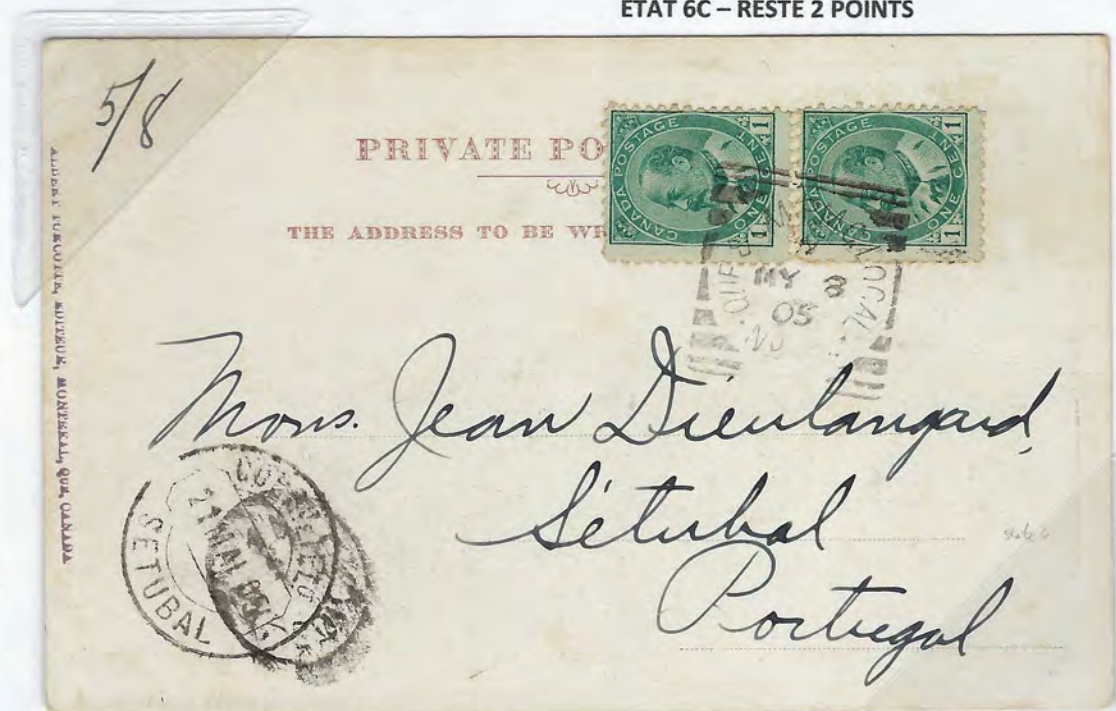 ETAT 6C – RESTE 2 POINTS
5/8
PRIVATE PO
THE ADDRESS TO BE WR
CANADA POSTAGE
ONE CENT
1 1
CANADA POSTAGE
ONE CENT
1 1
MY 8
05
Mons. Jean Dieulangard,
Sétubal
Portugal
21 MAI 05
SETUBAL
EDITEUR, MONTREAL, QUE, CANADA
state 6